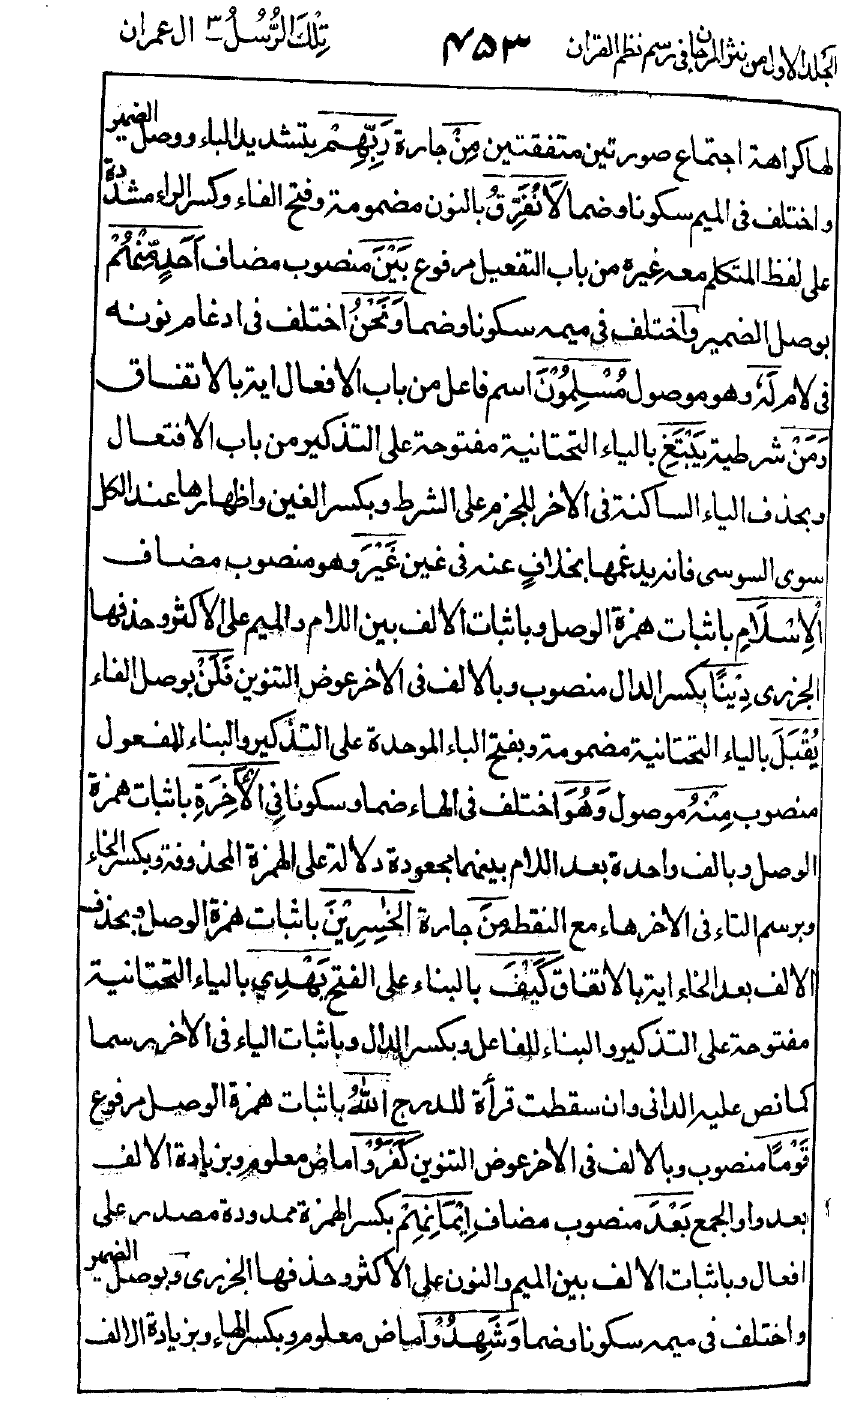 الجلد الاول من نثر المرجان فی رسم نظم القران ۴۵۳ تِلْكَ الرُّسُلُ ۳ ال عمران
لها كراهة اجتماع صورتين متفقتين مِنْ جارة رَبِّهِمْ بتشديد الباء ووصل الضمير
واختلف فی الميم سكونا وضما لَا نُفَرِّقُ بالنون مضمومة وفتح الفاء وكسر الراء مشددة
علی لفظ المتكلم معه غيره من باب التفعيل مرفوع بَيْنَ منصوب مضاف اَحَدٍ مِّنْهُمْ
بوصل الضمير واختلف فی ميمه سكونا وضما وَنَحْنُ اختلف فی ادغام نونه
فی لام لَهٗ وهو موصول مُسْلِمُوْنَ اسم فاعل من باب الافعال اية بالاتفاق
وَمَنْ شرطية يَبْتَغِ بالياء التحتانية مفتوحة علی التذكير من باب الافتعال
وبحذف الياء الساكنة فی الاخر للجزم علی الشرط وبكسر الغين واظهارها عند الكل
سوی السوسی فانه يدغمها بخلافٍ عنه فی غين غَيْرَ وهو منصوب مضاف
الْاِسْلَامِ باثبات همزة الوصل وباثبات الالف بين اللام والميم علی الاكثر وحذفها
الجزری دِيْنًا بكسر الدال منصوب وبالالف فی الاخر عوض التنوين فَلَنْ بوصل الفاء
يُقْبَلَ بالياء التحتانية مضمومة وبفتح الباء الموحدة علی التذكير والبناء للمفعول
منصوب مِنْهُ موصول وَهُوَ اختلف فی الهاء ضما وسكونا فِی الْاٰخِرَةِ باثبات همزة
الوصل وبالف واحدة بعد اللام بينهما مجعودة دلالة علی الهمزة المحذوفة وبكسر الخاء
وبرسم التاء فی الاخر هاء مع النقطة مِنَ جارة الْخٰسِرِيْنَ باثبات همزة الوصل وبحذف
الالف بعد الخاء اية بالاتفاق كَيْفَ بالبناء علی الفتح يَهْدِی بالياء التحتانية
مفتوحة علی التذكير والبناء للفاعل وبكسر الدال وباثبات الياء فی الاخر رسما
كما نص عليه الدانی وان سقطت قرأة للدرج اللّٰهُ باثبات همزة الوصل مرفوع
قَوْمًا منصوب وبالالف فی الاخر عوض التنوين كَفَرُوْا ماض معلوم وبزيادة الالف
بعد واو الجمع بَعْدَ منصوب مضاف اِيْمَانِهِمْ بكسر الهمزة ممدودة مصدر علی
افعال وباثبات الالف بين الميم والنون علی الاكثر وحذفها الجزری وبوصل الضمير
واختلف فی ميمه سكونا وضما وَشَهِدُوْا ماض معلوم وبكسر الهاء وبزيادة الالف